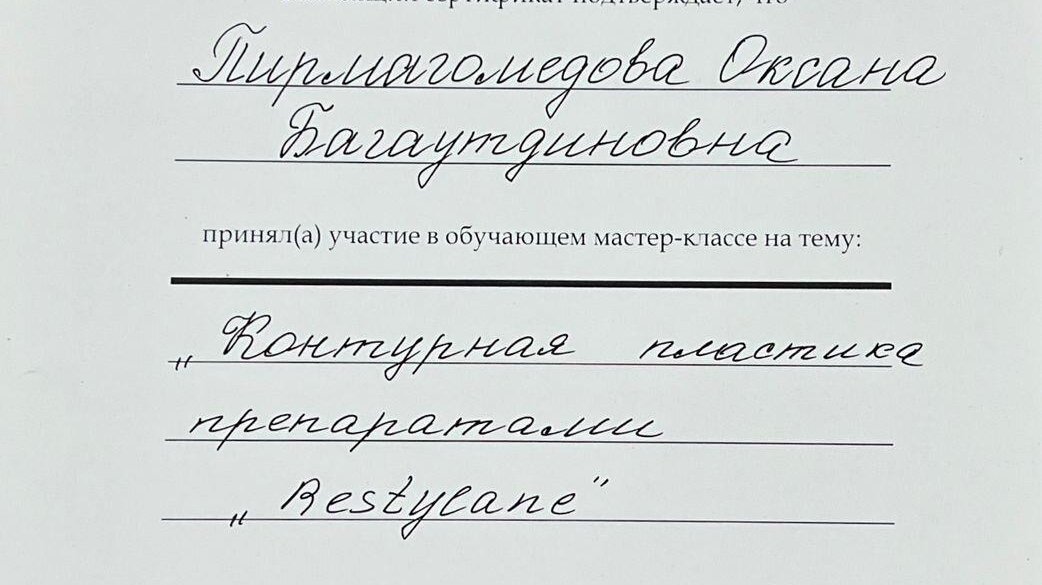 сертификат подтверждает, что
Пирмагомедова Оксана
Багаутдиновна
принял(а) участие в обучающем мастер-классе на тему:
„Контурная пластика
препаратами
„Restylane”